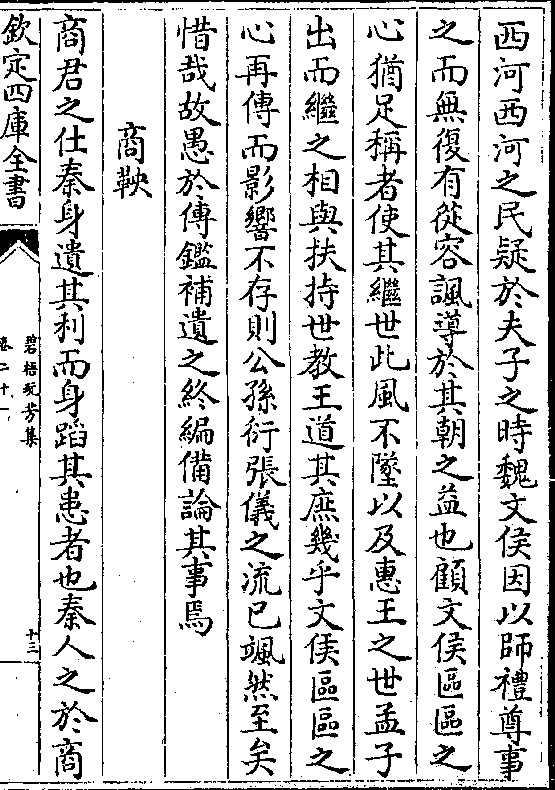 西河西河之民疑於夫子之時魏文侯因以師禮尊事
之而無復有從容諷導於其朝之益也顧文侯區區之
心猶足稱者使其繼世此風不墜以及惠王之世孟子
出而繼之相與扶持世教王道其庶幾乎文侯區區之
心再傳而影響不存則公孫衍張儀之流已颯然至矣
惜哉故愚於傳鑑補遺之終編備論其事焉
商鞅
商君之仕秦身遺其利而身蹈其患者也秦人之於商
欽定四庫全書
碧梧玩芳集
卷二十一
十三